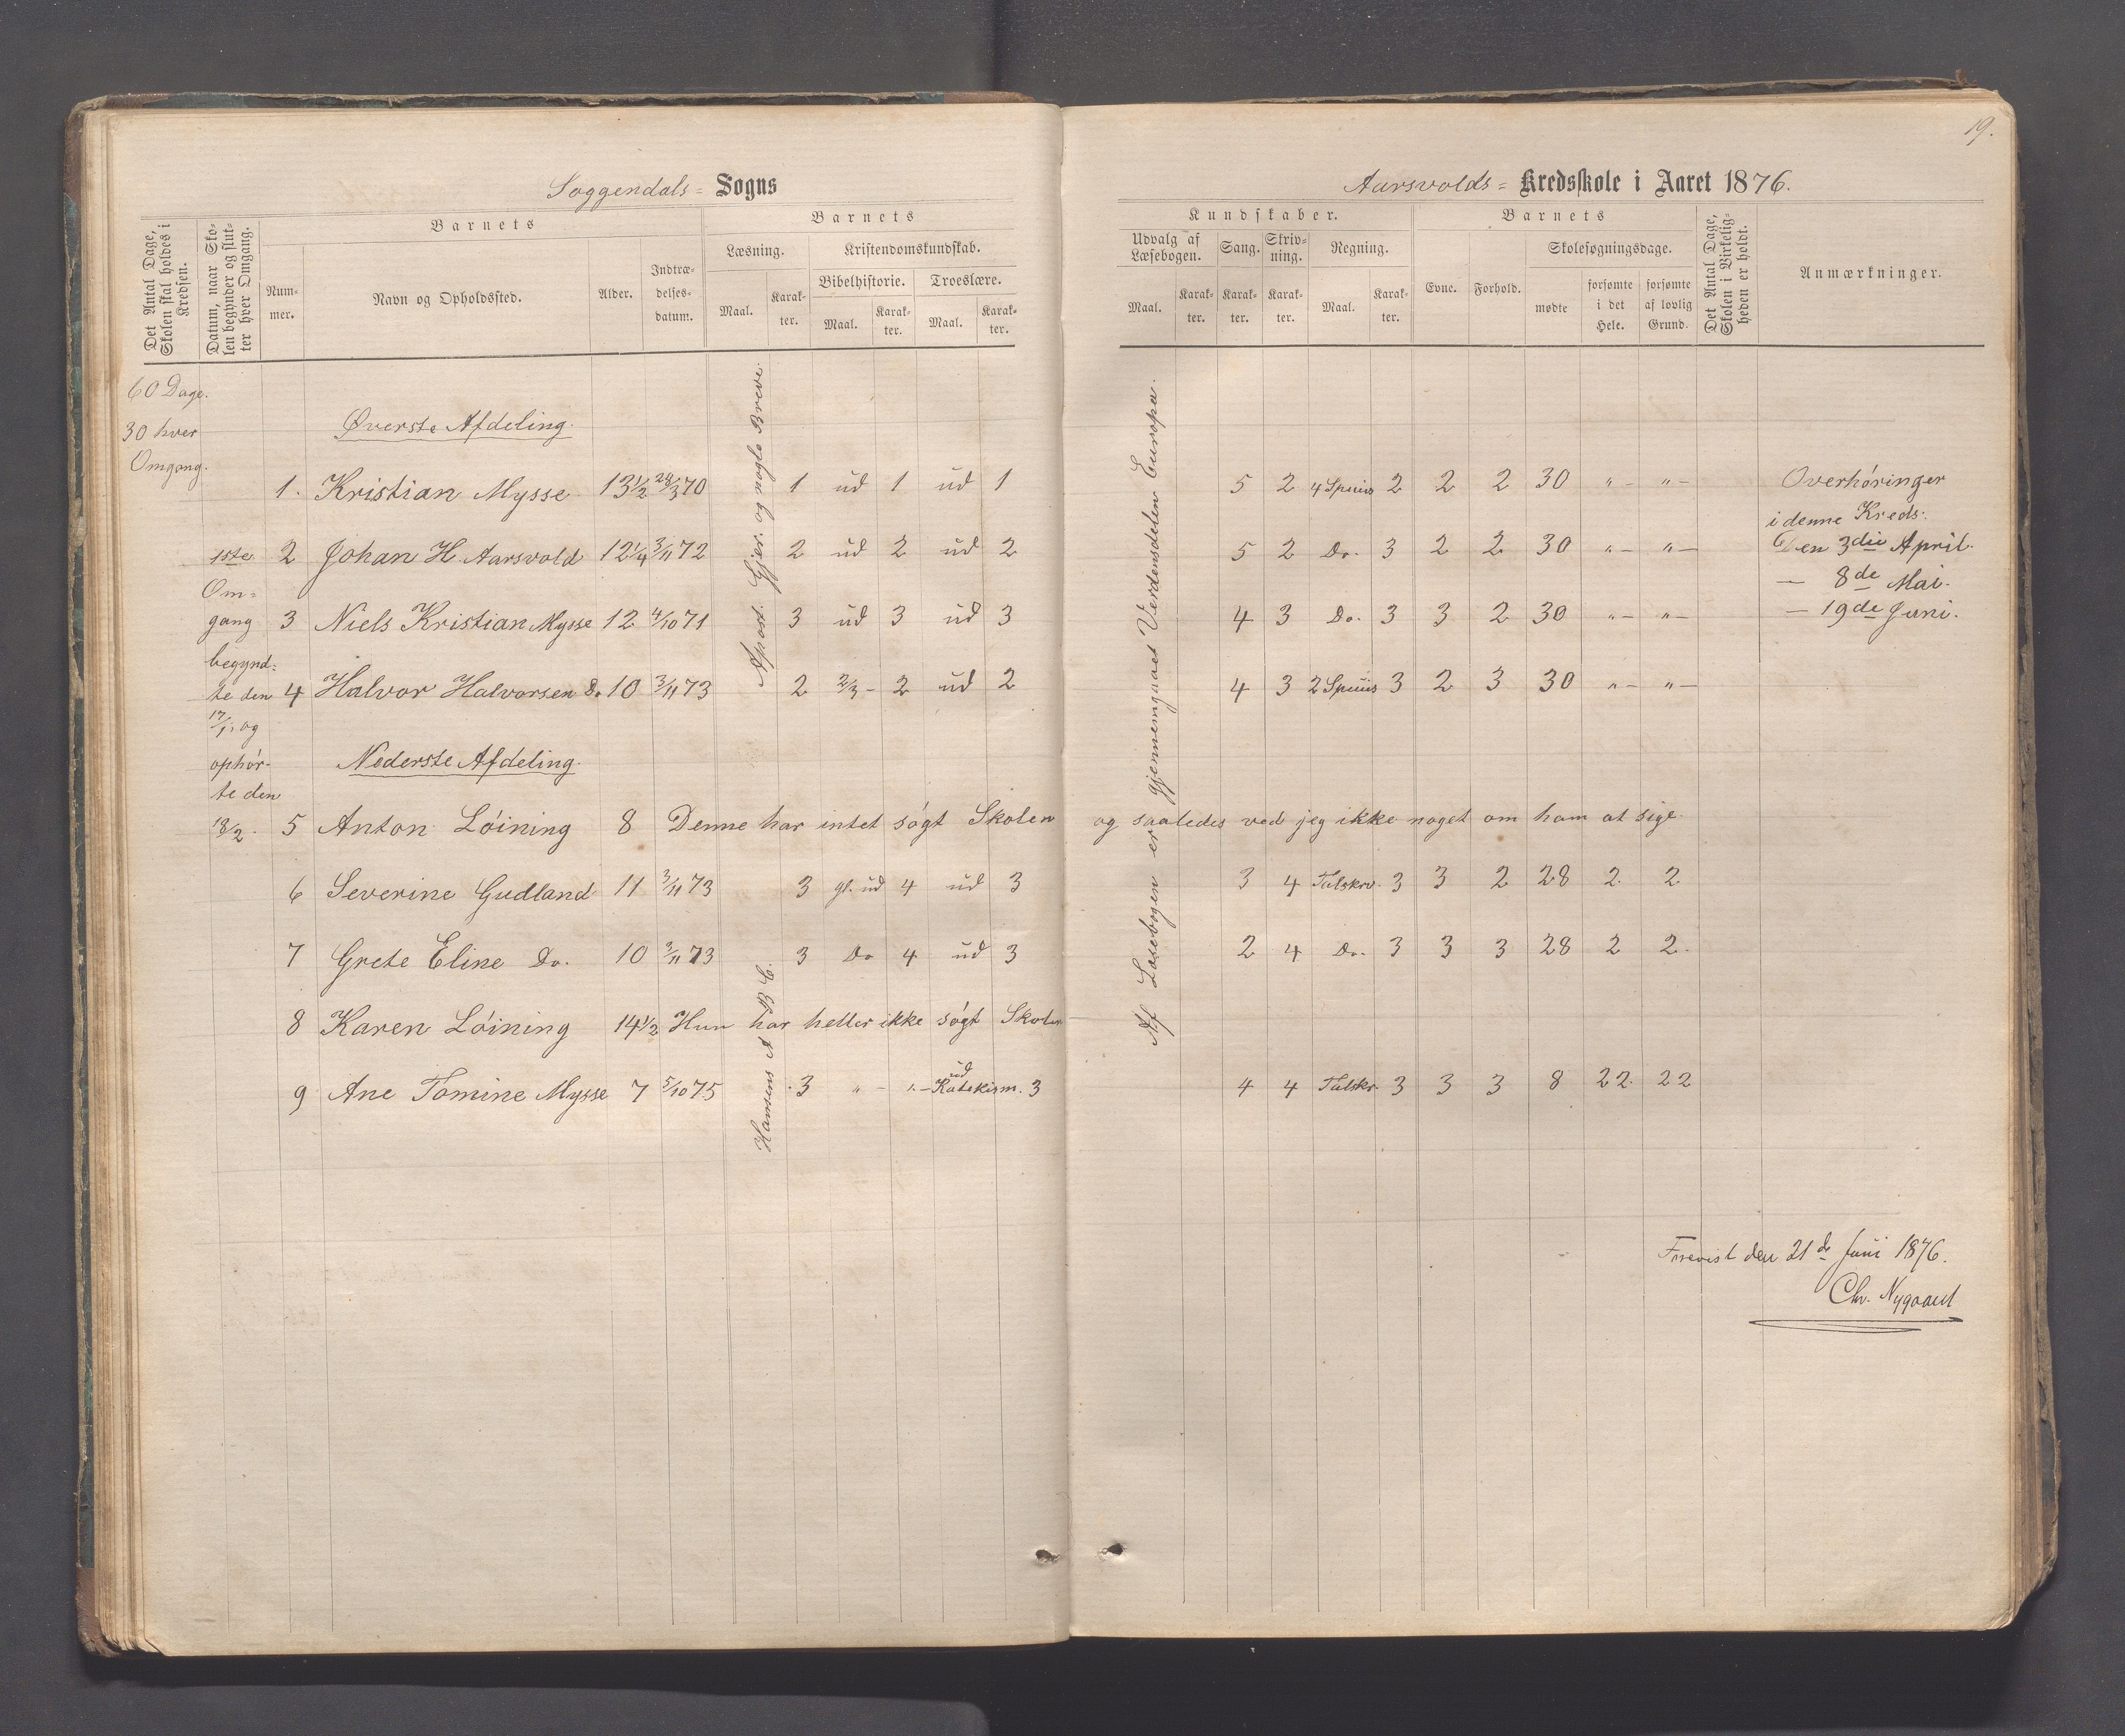 19.
Soggendals = Sogns
Aarsvolds = Kredsskole i Aaret 1876.
Det Antal Dage, Skolen skal holdes i Kredsen.
Datum, naar Skolen begynder og slutter hver Omgang.
Barnets
Nummer.
Navn og Opholdssted.
Alder.
Indtrædelsesdatum.
Barnets
Læsning.
Maal.
Karakter.
Kristendomskundskab.
Bibelhistorie.
Maal.
Karakter.
Troeslære.
Maal.
Karakter.
Kundskaber.
Udvalg af Læsebogen.
Maal.
Karakter.
Sang.
Karakter.
Skrivning.
Karakter.
Regning.
Maal.
Karakter.
Barnets
Evne.
Forhold.
Skolesøgningsdage.
mødte
forsømte i det Hele.
forsømte af lovlig Grund.
Det Antal Dage, Skolen i Virkeligheden er holdt.
Anmærkninger.
60 Dage.
30 hver
Omgang.
1ste
Om=
gang
begynd=
te den
17/1; og
ophør-
te den
18/2.
Øverste Afdeling.
1. Kristian Mysse 13½ 28/3 70 1 ud 1 ud 1 5 2 4 Spuiis 2 2 2 30 „ – „ –
2 Johan H. Aarsvold 12¼ 3/11 72 2 ud 2 ud 2 5 2 Do. 3 2 2 30 „ – „ –
3 Niels Kristian Mysse 12 4/10 71 3 ud 3 ud 3 4 3 Do. 3 3 2 30 „ – „ –
4 Halvor Halvorsen Do 10 3/11 73 2 2/3 – 2 ud 2 4 3 2 Spuiis 3 2 3 30 „ – „ –
Apost. Gjer. og nogle Breve.
Af Læsebogen er gjennemgaaet Verdensdelen Europa.
Nederste Afdeling.
5 Anton Løining 8 Denne har intet søgt Skolen og saaledes ved jeg ikke noget om ham at sige
6 Severine Gudland 11 3/11 73 3 gl. ud 4 ud 3 3 4 Talskrv. 3 3 2 28 2 2
7 Grete Eline Do. 10 3/11 73 3 Do 4 ud 3 2 4 Do. 3 3 3 28 2 2.
8 Karen Løining 14½ Hun har heller ikke søgt Skolen
9 Ane Tomine Mysse 7 5/10 75 3 „ – „ – ud Katekism. 3 4 4 Talskr. 3 3 3 8 22 22
Hansens A B C.
Overhøringer
i denne Kreds:
Den 3die April.
— 8de Mai.
— 19de Juni.
Forevist den 21de Juni 1876.
Chr. Nygaard